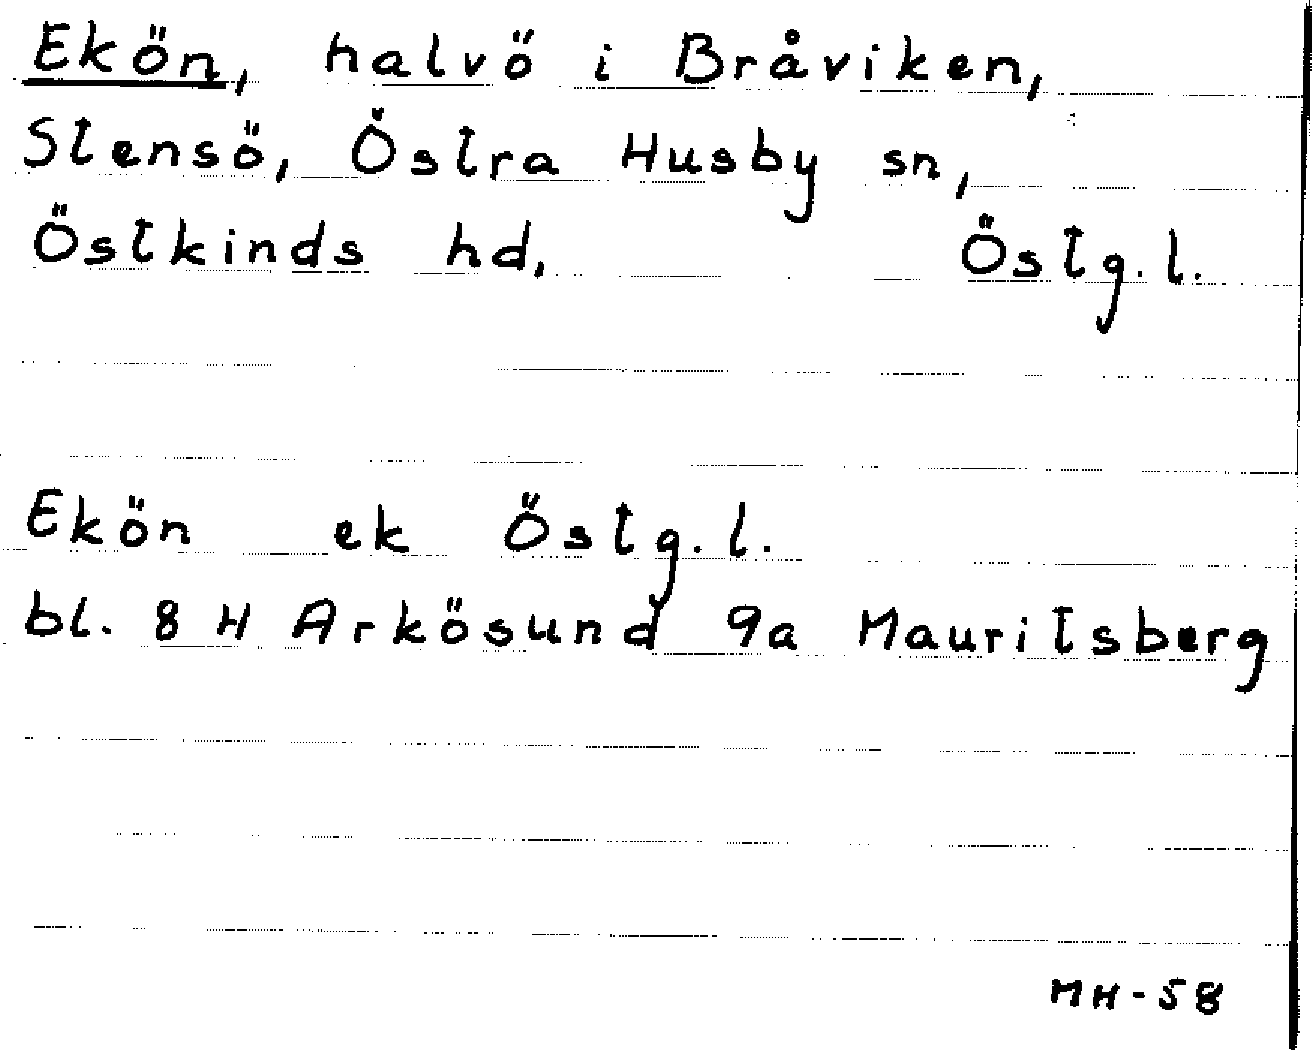 Ekön, halvö i Bråviken,
Stensö, Östra Husby sn,
Östkinds hd, Östg.l.
Ekön ek Östg.l.
bl. 8 H Arkösund 9a Mauritsberg
MH-58